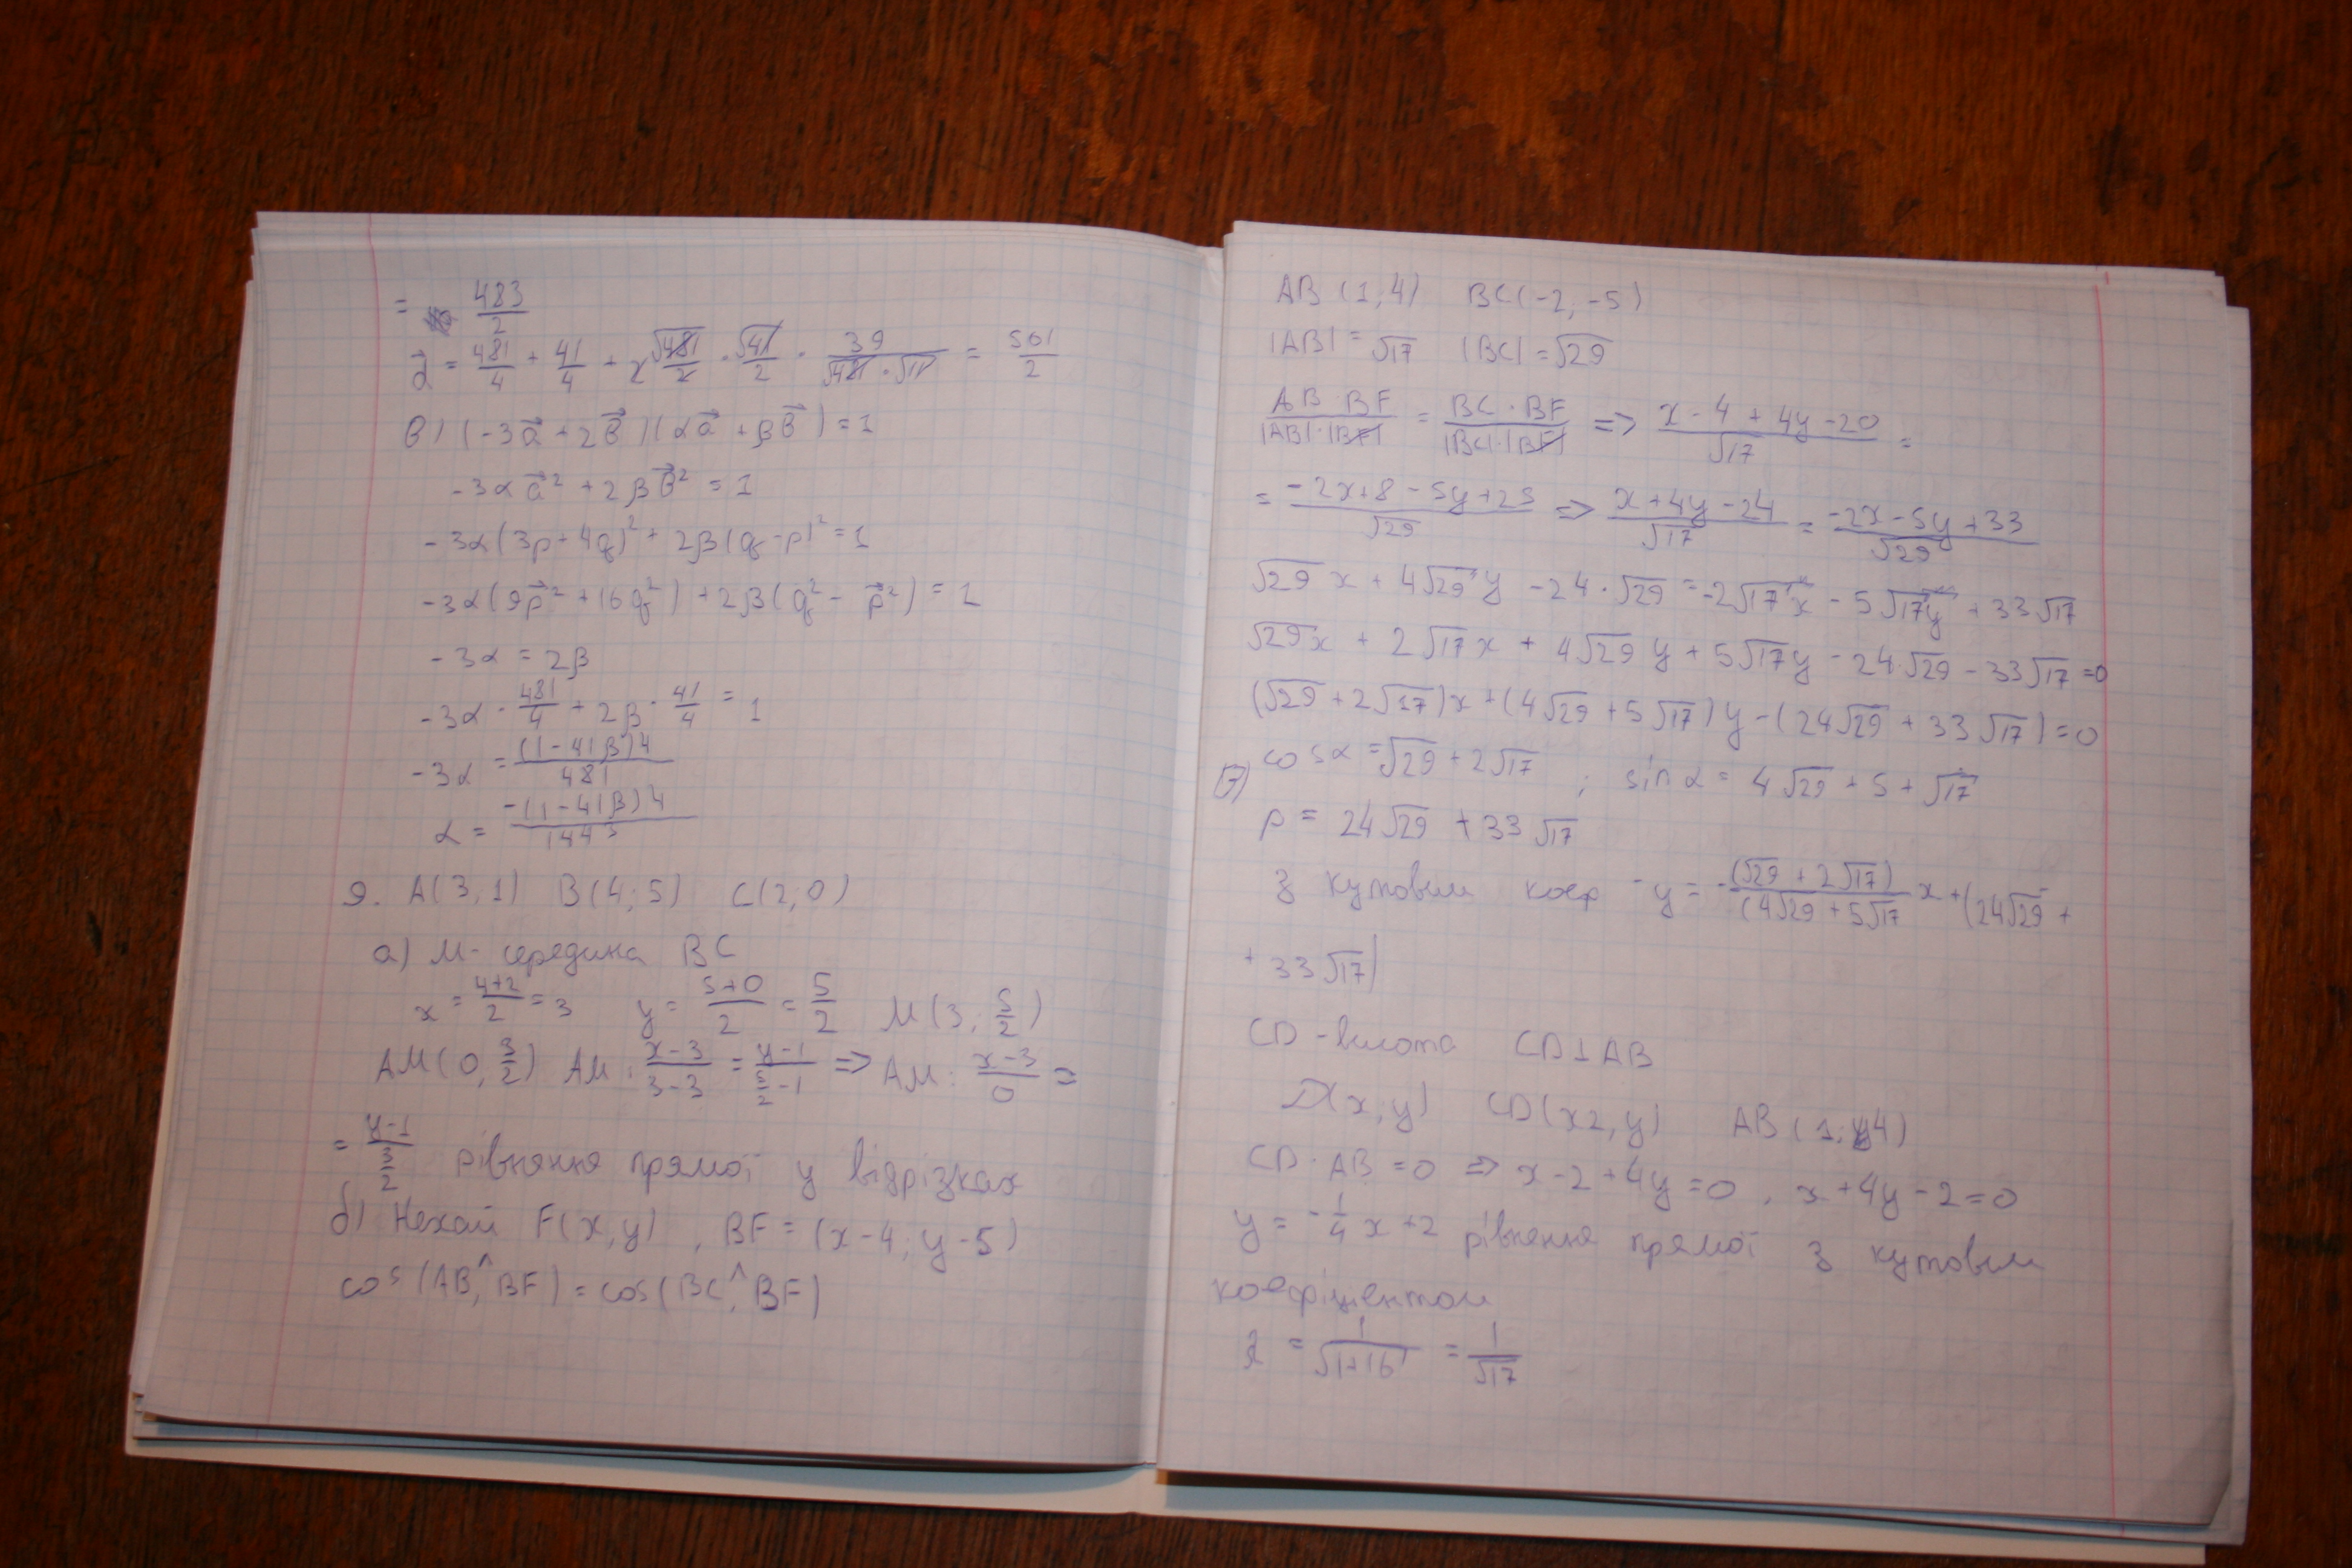 = 483/2
d⃗ = 481/4 + 41/4 + 2 √481/2 · √41/2 · 39/(√481 · √41) = 561/2
в) (-3a⃗ + 2b⃗)(αa⃗ + βb⃗) = 1
-3αa⃗² + 2βb⃗² = 1
-3α(3p + 4q)² + 2β(q - p)² = 1
-3α(9p⃗² + 16q²) + 2β(q² - p⃗²) = 1
-3α = 2β
-3α · 481/4 + 2β · 41/4 = 1
-3α = (1 - 41β)4/481
α = -(1 - 41β)4/1443
9. A(3, 1) B(4; 5) C(2, 0)
а) M - середина BC
x = (4+2)/2 = 3 y = (5+0)/2 = 5/2 M(3; 5/2)
AM(0, 3/2) AM: (x-3)/(3-3) = (y-1)/(5/2 - 1) => AM: (x-3)/0 =
= (y-1)/(3/2) рівняння прямої у відрізках
б) Нехай F(x, y), BF = (x-4; y-5)
cos(AB,^BF) = cos(BC,^BF)
AB (1; 4) BC(-2, -5)
|AB| = √17 |BC| = √29
(AB · BF)/(|AB|·|BF|) = (BC · BF)/(|BC|·|BF|) => (x - 4 + 4y - 20)/√17 =
= (-2x + 8 - 5y + 25)/√29 => (x + 4y - 24)/√17 = (-2x - 5y + 33)/√29
√29 x + 4√29 y - 24·√29 = -2√17 x - 5√17 y + 33√17
√29 x + 2√17 x + 4√29 y + 5√17 y - 24√29 - 33√17 = 0
(√29 + 2√17)x + (4√29 + 5√17)y - (24√29 + 33√17) = 0
cos α = √29 + 2√17 ; sin α = 4√29 + 5 + √17
p = 24√29 + 33√17
З кутовим коеф - y = -(√29 + 2√17)/(4√29 + 5√17 x + (24√29 +
+ 33√17)
CD - висота CD ⊥ AB
D(x; y) CD(x2, y) AB (1; 4)
CD · AB = 0 => x - 2 + 4y = 0, x + 4y - 2 = 0
y = -1/4 x + 2 рівняння прямої з кутовим
коефіцієнтом
= 1/√(1+16) = 1/√17